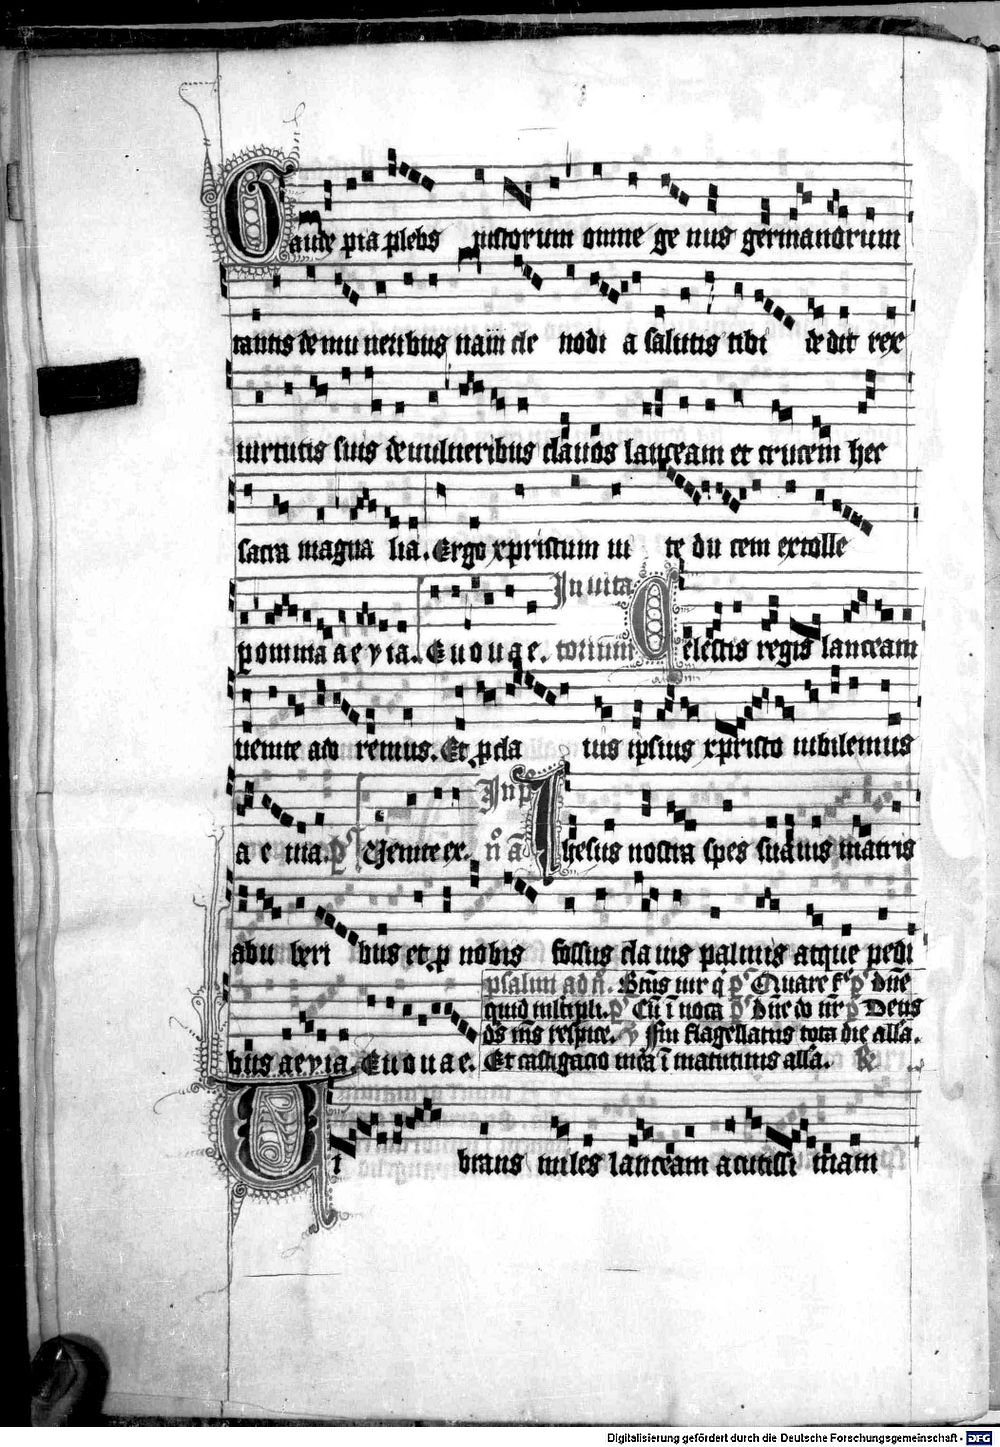 Gaude pia plebs iustorum omne ge nus germanorum
tantis de mu neribus nam cle nodi a salutis tibi dedit rex
uirtutis suis de uulneribus clauos lanceam et crucem hec
sacra magna lia. Ergo xpristum ui te du cem extolle
In uita
p omnia aevia. Euouae. torium Celestis regis lanceam
uenite ado remus. Et p cla uis ipsius xpristo iubilemus
In p
a e uia. ps Uenite ex. no a Ihesus nostra spes suauis matris
abu beri bus et p nobis fossus cla uis palmis atque pedi
psalm ad n. Btus uir q ps Quare f. ps dne
quid mltipli. ps Cu i uoca ps dne do nr ps Deus
bus aevia. Euouae. ds ms respice. v Fui flagellatus tota die alla.
Et castigatio mea i matutinis alla. R
Ui brans miles lanceam acutissi mam
Digitalisierung gefördert durch die Deutsche Forschungsgemeinschaft - DFG